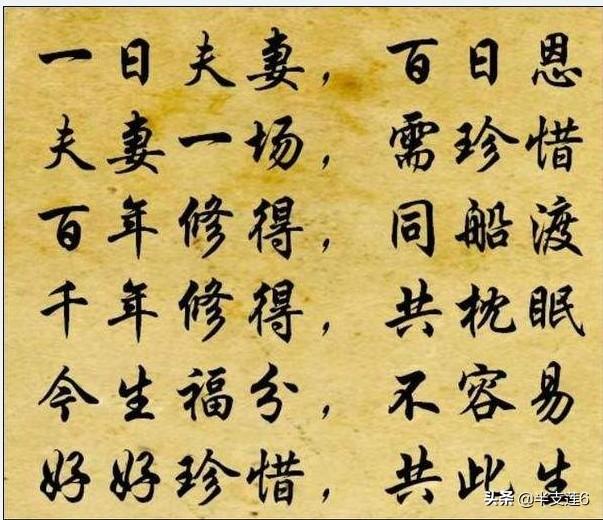 一日夫妻，百日恩
夫妻一场，需珍惜
百年修得，同船渡
千年修得，共枕眠
今生福分，不容易
好好珍惜，共此生
头条 @半支莲6